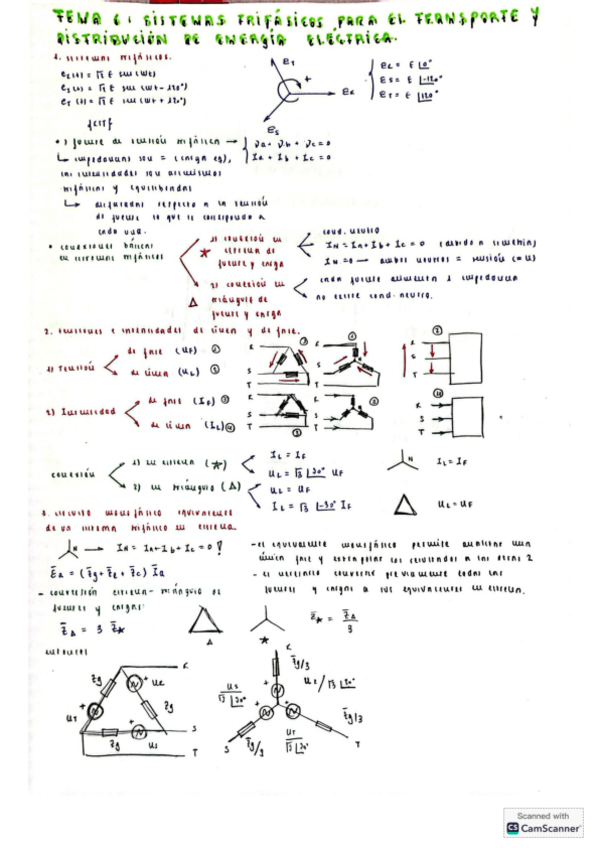 TEMA 6: SISTEMAS TRIFÁSICOS PARA EL TRANSPORTE Y
DISTRIBUCIÓN DE ENERGÍA ELÉCTRICA.
1. sistemas trifásicos.
e_R(t) = √2 E sen (wt)
e_S(t) = √2 E sen (wt - 120°)
e_T(t) = √2 E sen (wt + 120°)
E_T
+
E_R
E_S
E_R = E |0°
E_S = E |-120°
E_T = E |120°
• si fuente de tensión trifásica → Va + Vb + Vc = 0
Ia + Ib + Ic = 0
↳ impedancias son = (carga eq),
las intensidades son
trifásicas y equilibradas
↳ desfasadas respecto a la tensión
de fuente lo que le corresponda a
cada una.
• conexiones básicas
en sistemas trifásicos
1) conexión en
estrella de
fuente y carga
cond. neutro
I_N = Ia + Ib + Ic = 0 (debido a simetría)
I_N = 0 → ambos neutros = tensión (=U)
2) conexión en
triángulo de
fuente y carga
cada fuente alimenta 1 impedancia
no existe cond. neutro.
2. tensiones e intensidades de línea y de fase.
1) Tensión
de fase (U_F)
de línea (U_L)
2) Intensidad
de fase (I_F) ③
de línea (I_L) ④
R
S
T
R
S
T
R
S
T
conexión
1) en estrella (★)
I_L = I_F
U_L = √3 |30° U_F
2) en triángulo (Δ)
U_L = U_F
I_L = √3 |-30° I_F
N
I_L = I_F
U_L = U_F
3. circuito monofásico equivalente
de un sistema trifásico en estrella.
N → I_N = Ia + Ib + Ic = 0 !
E_R = (Zg + Zl + Zc) Ia
- el equivalente monofásico permite analizar una
única fase y extrapolar los resultados a las otras 2
- es necesario convertir previamente todas las
fuentes y cargas a sus equivalentes en estrella.
- conversión estrella - triángulo de
fuentes y cargas:
Z_Δ = 3 Z_★
Δ
★
Z_★ = Z_Δ / 3
entonces
Zg
U_R
U_T
Zg
Zg
U_S
R
S
T
R
Zg/3
U_R / √3 |30°
U_S
√3 |30°
U_T
√3 |30°
Zg/3
S
Zg/3
T
Scanned with
CS CamScanner